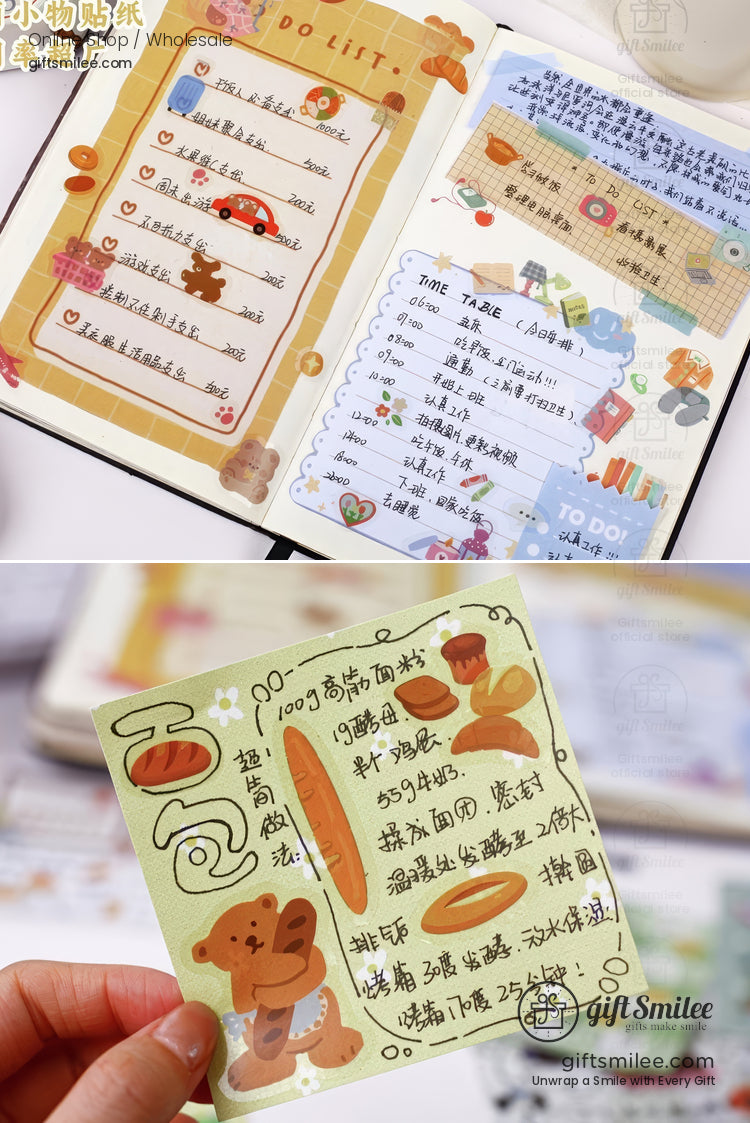 小物贴纸
Online Shop / Wholesale
giftsmilee.com
DO LIST.
1000元
姐妹聚会支出
500元
水果雅(支出
200元
周末出游
500元
不可抗力支出
200元
游戏支出
200元
控制不住剁手支出
200元
买衣服生活用品支出
500元
* TO DO LIST *
学习做饭
整理电脑桌面
看摄影展
收拾卫生
NOTES
TIME TABLE (今日安排)
06:00 起床
07:00 吃早饭,出门运动!!!
08:00 通勤
09:00 开始上班 (之前要打扫卫生)
10:00 认真工作
拍摄图片,更新视频
12:00 吃午饭,午休
14:00 认真工作
18:00 下班,回家吃饭
去睡觉
TO DO!
认真工作!!!
gift Smilee
Giftsmilee
official store
面包
超简做法:
100g高筋面粉
1g酵母.
半个鸡蛋.
55g牛奶.
揉成面团,密封
温暖处发酵至2倍大,
擀圆
排气后
烤箱30度发酵,放水保湿;
烤箱170度25分钟!
gift Smilee
gifts make smile
giftsmilee.com
Unwrap a Smile with Every Gift